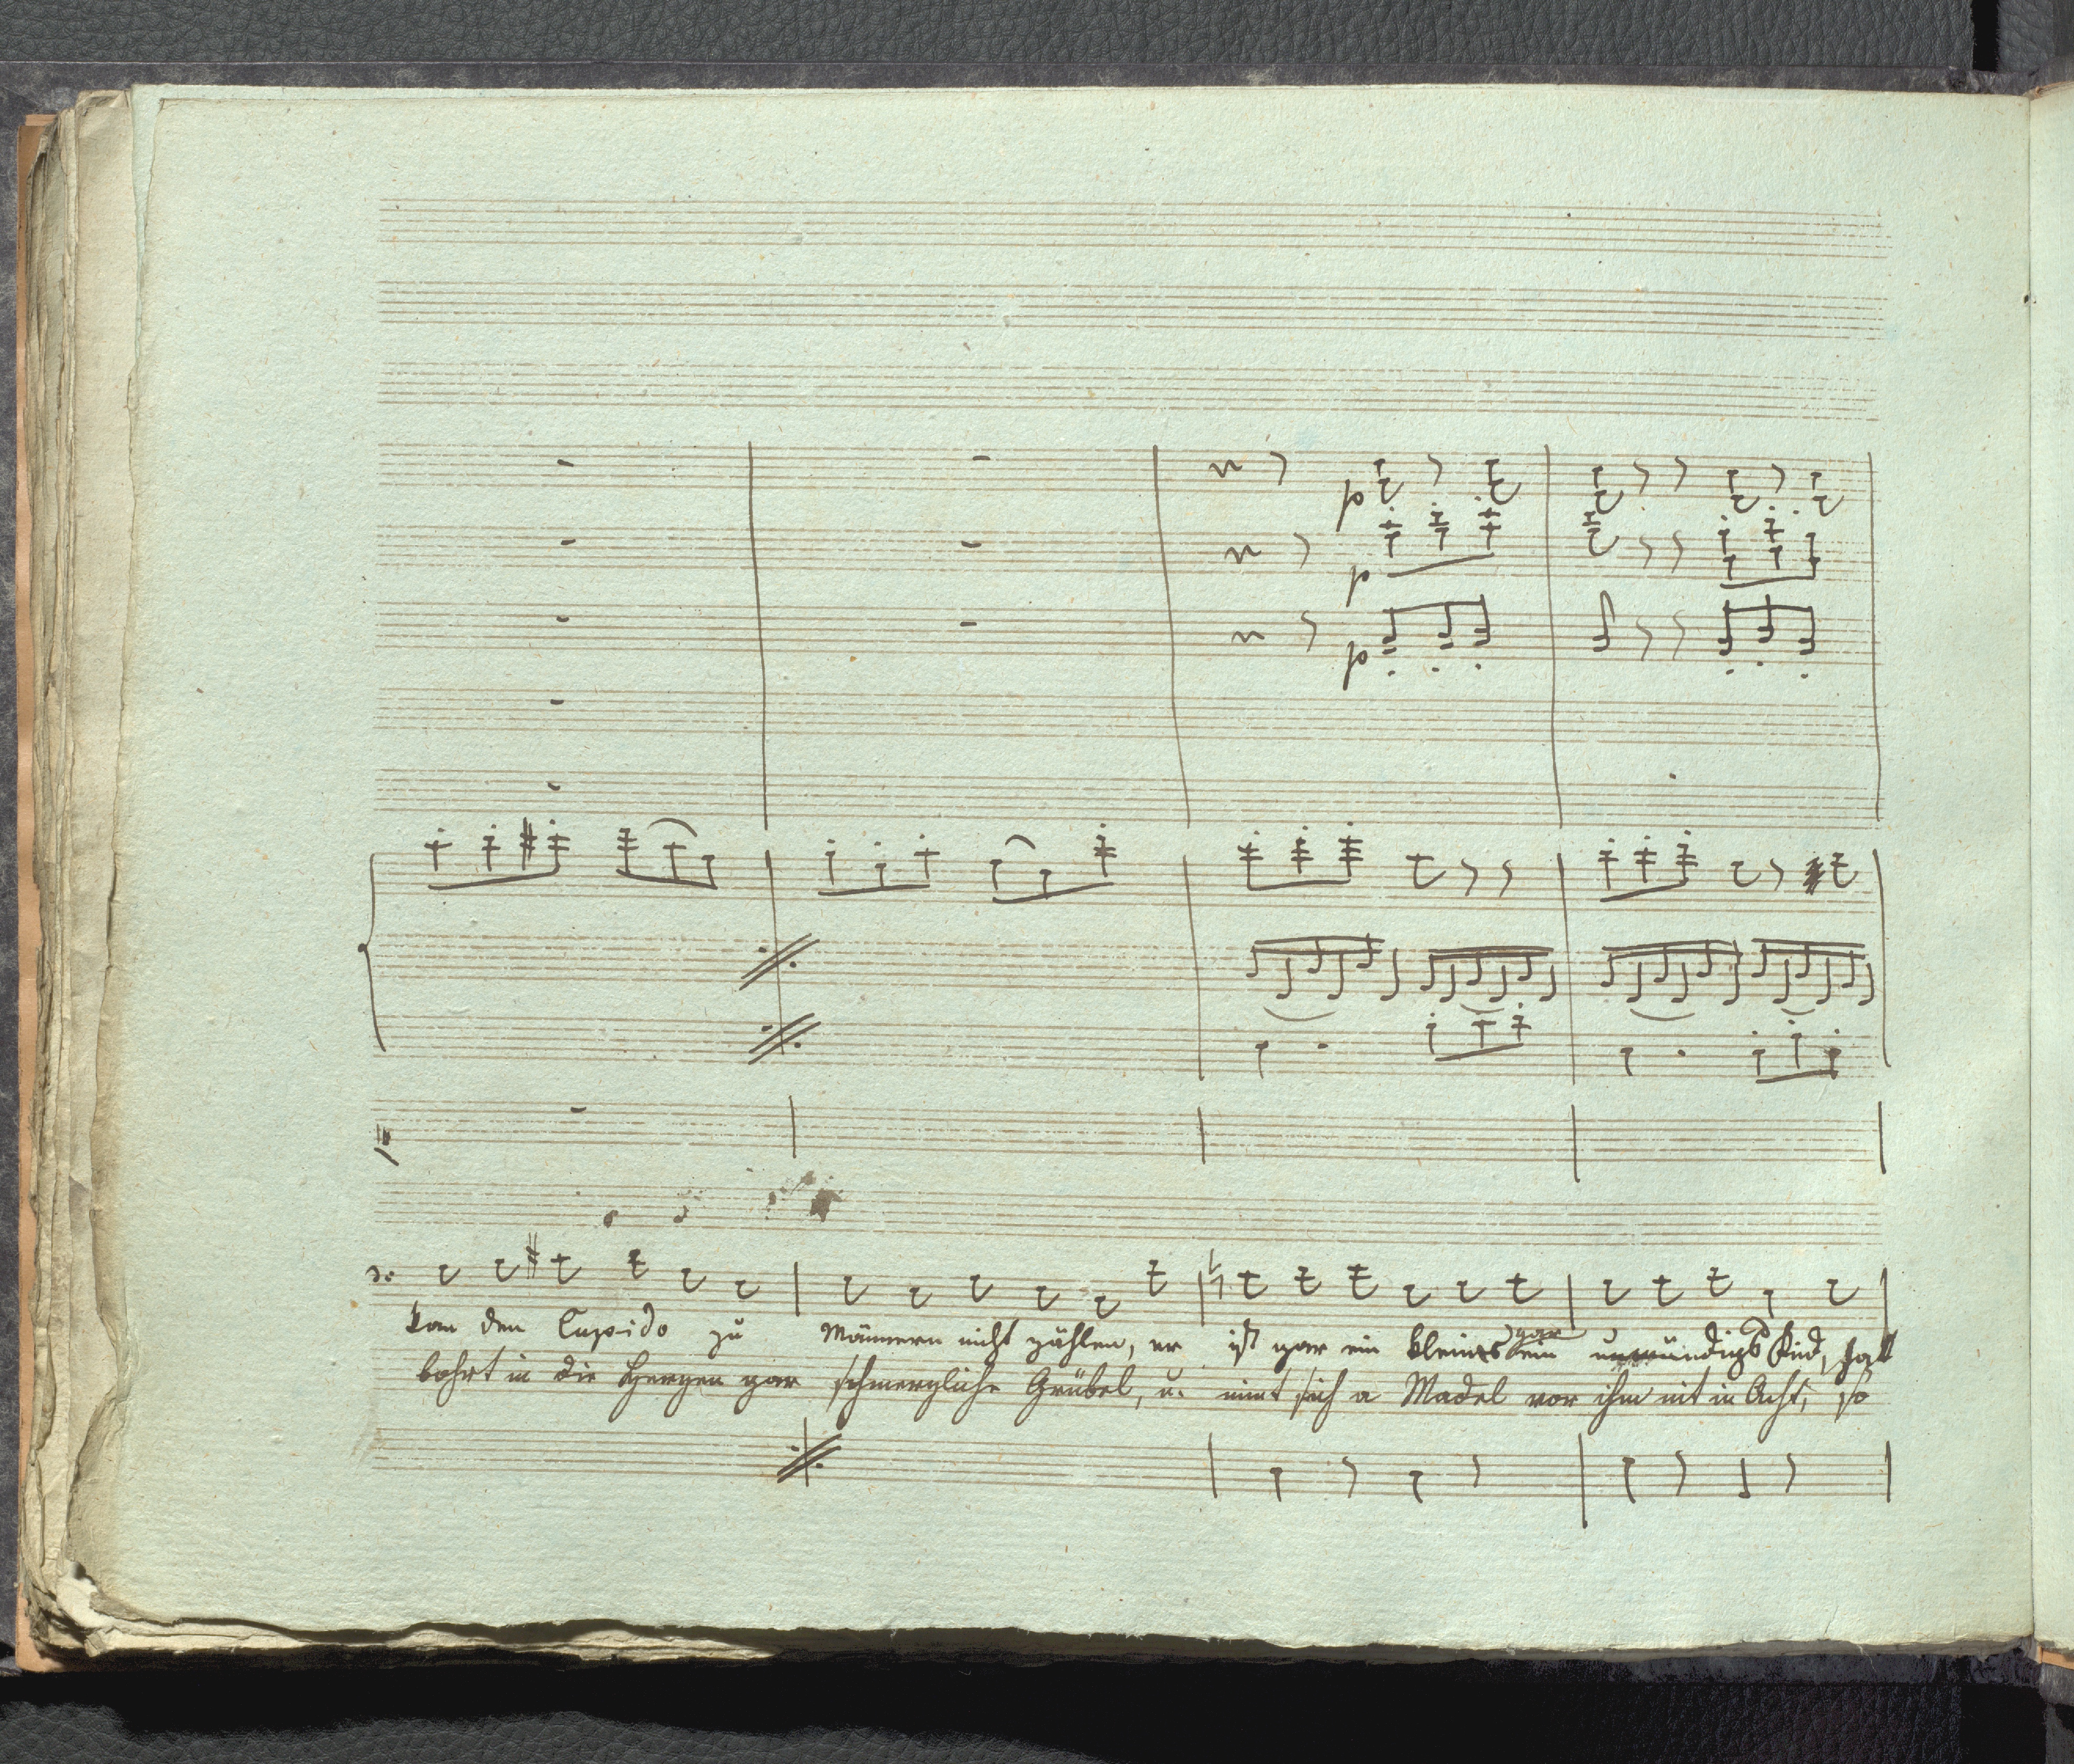 p
p
p
kan den Cupido zu Männern nicht zählen, er ist gar ein kleines ein unmündigs Kind,
gar
bohrt in die Herzen gar schmerzliche Grübel, u. nimt sich a Madel vor ihm nit in Acht, so